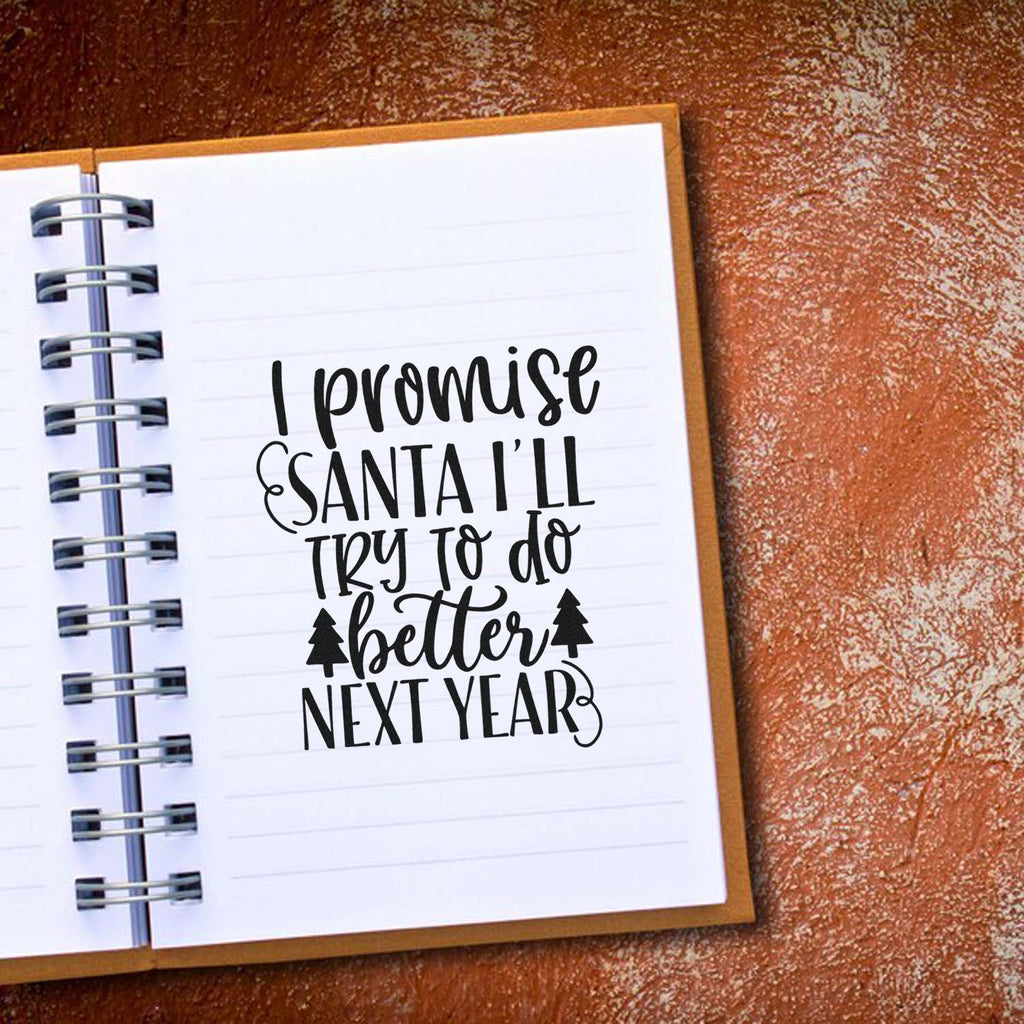 I promise
SANTA I'LL
TRY TO do
better
NEXT YEAR